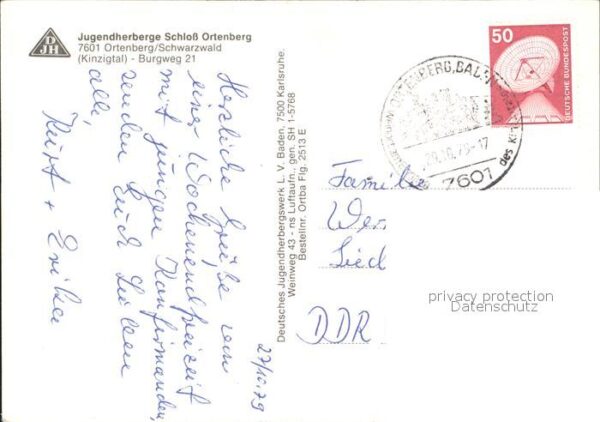 DJH
Jugendherberge Schloß Ortenberg
7601 Ortenberg/Schwarzwald
(Kinzigtal) - Burgweg 21
Herzliche Grüße von
einer Wochenendfreizeit
mit jungen Konfirmanden,
senden Euch Lieben
alle
Kurt + Erika
27/10.79
Deutsches Jugendherbergswerk L. V. Baden, 7500 Karlsruhe.
Weinweg 43 - ns Luftaufn., gen. SH 1-5768
Bestellnr. Ortba Flg. 2513 E
50
DEUTSCHE BUNDESPOST
ORTENBERG, BADEN
7601
Familie
Wer
Lied
DDR
privacy protection
Datenschutz